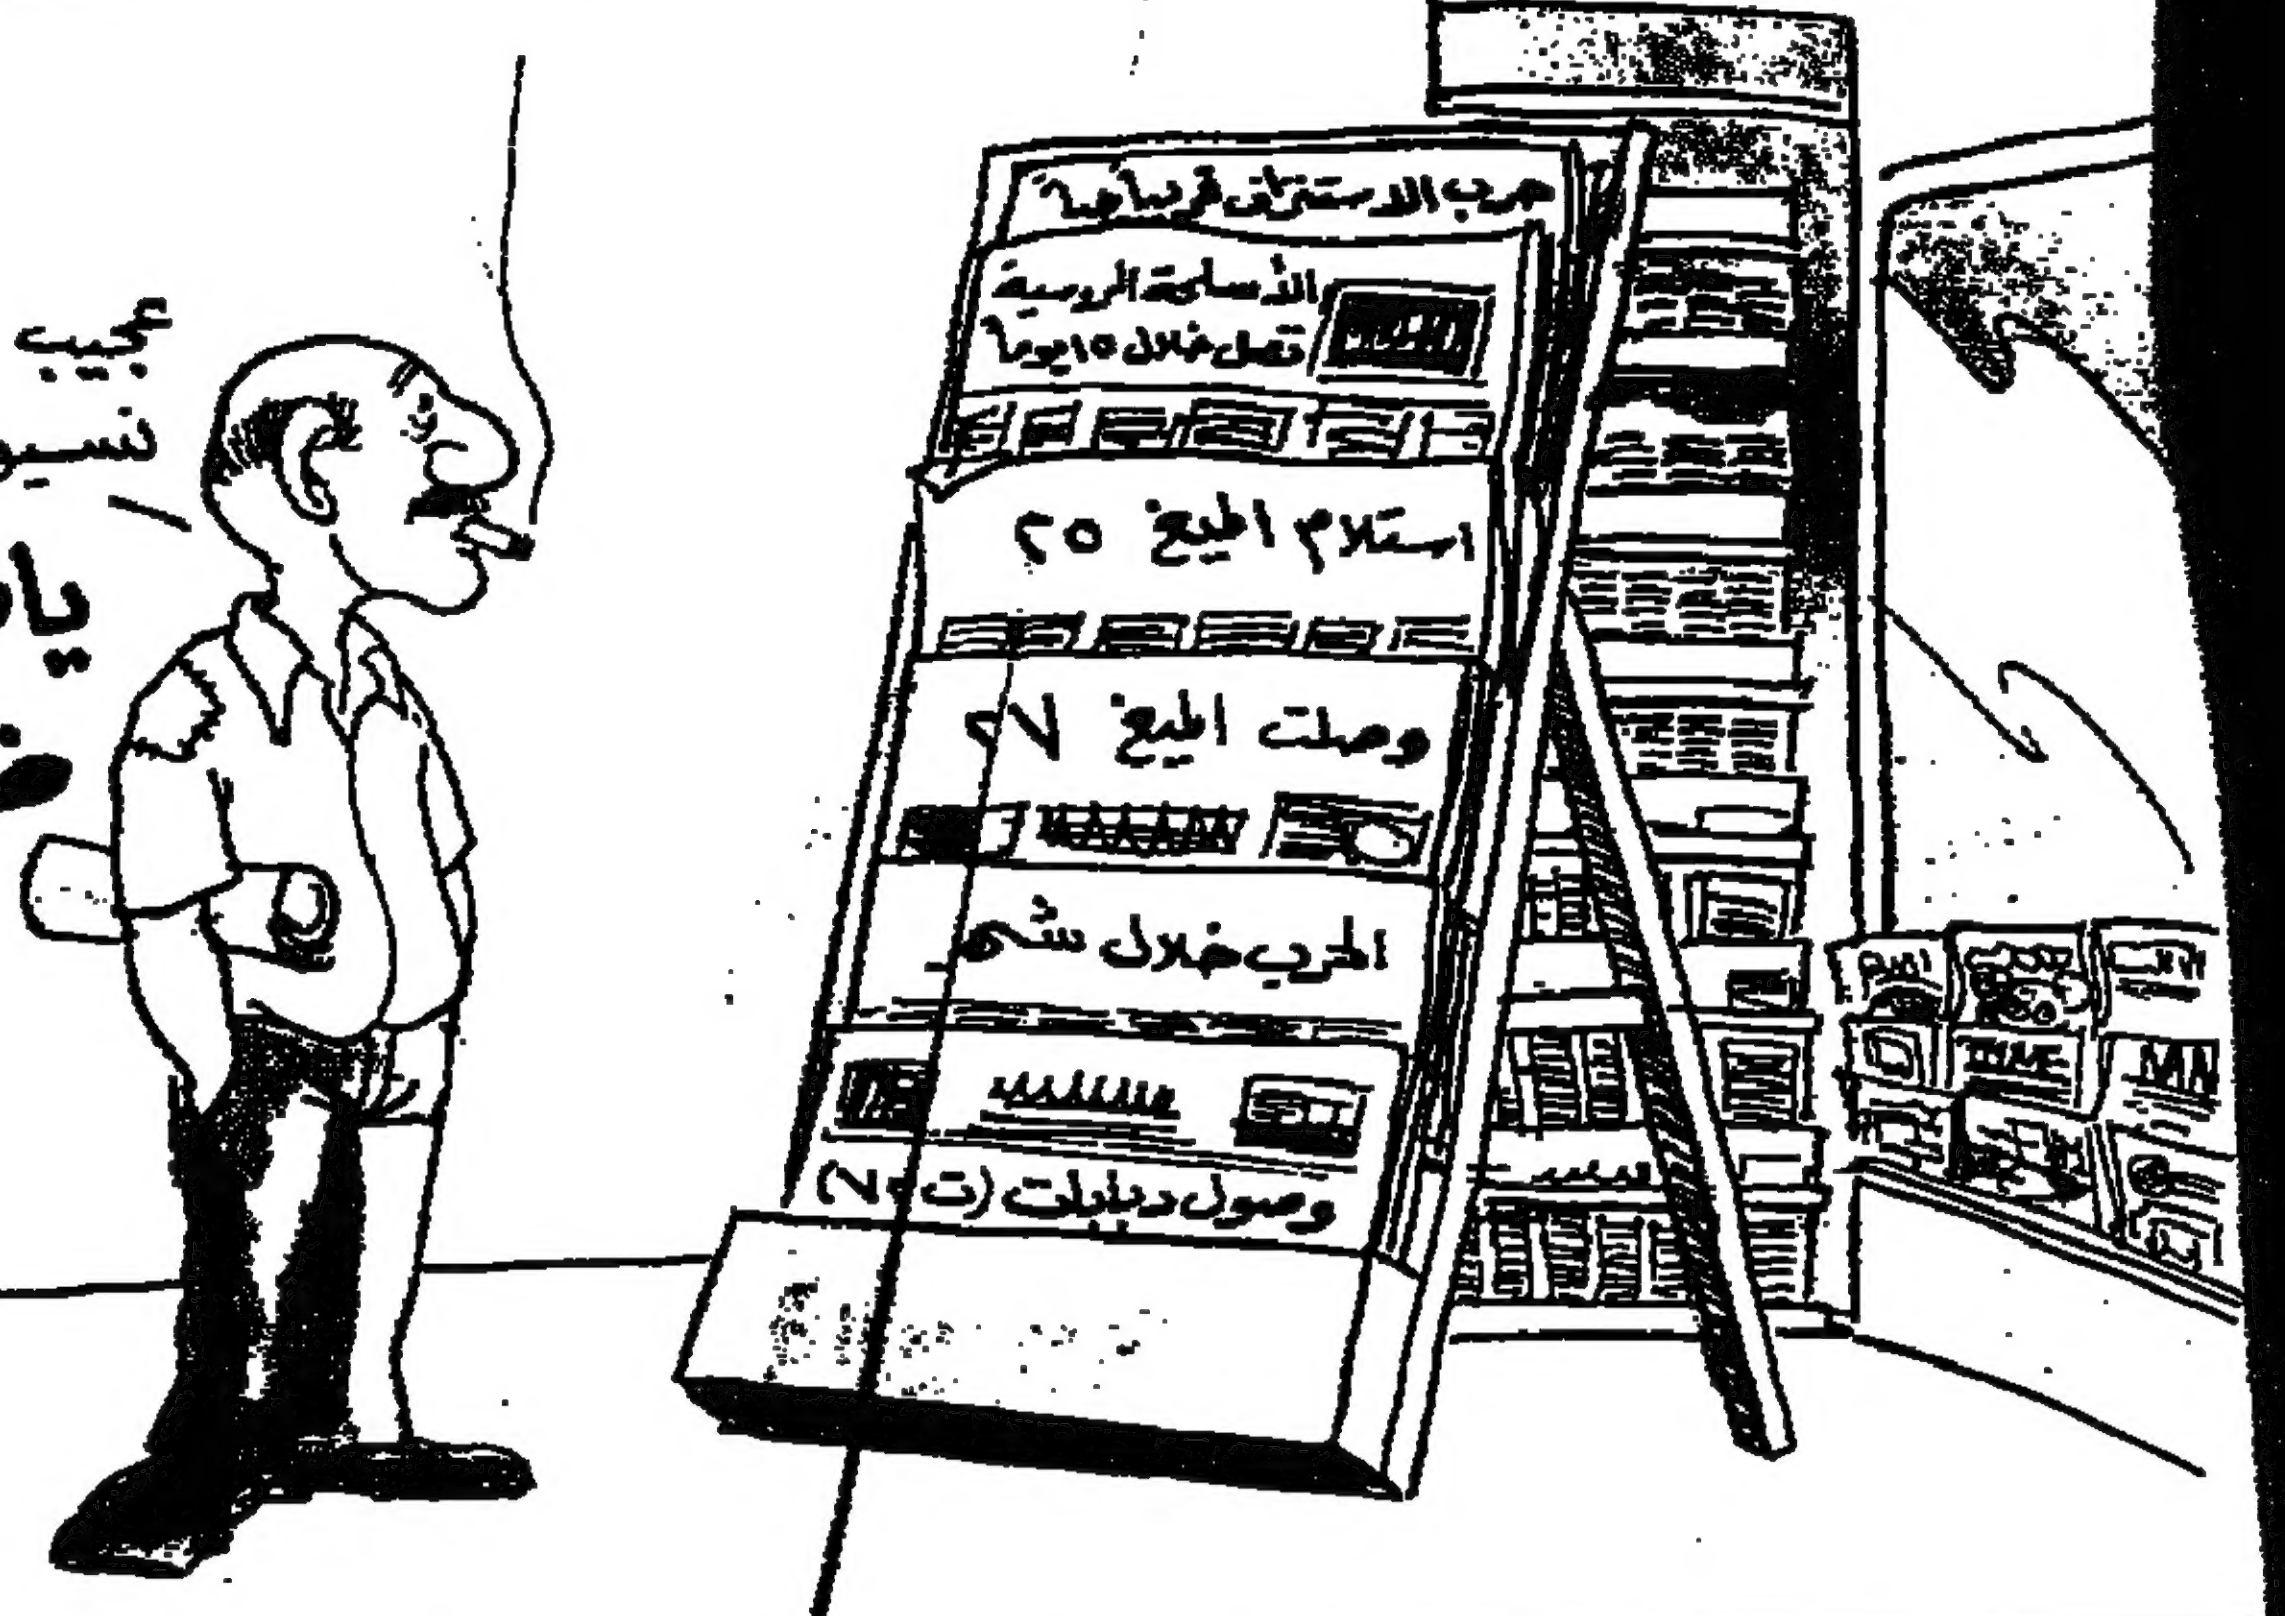 حرب الاستنزاف قريباً جداً
الأسلحة الروسية
تصل خلال ١٥ يوماً
استلام الميغ ٢٥
وصلت الميغ ٢٧
الحرب خلال شهر
وصول دبابات (ت ٧٢)
عجيب
TIME